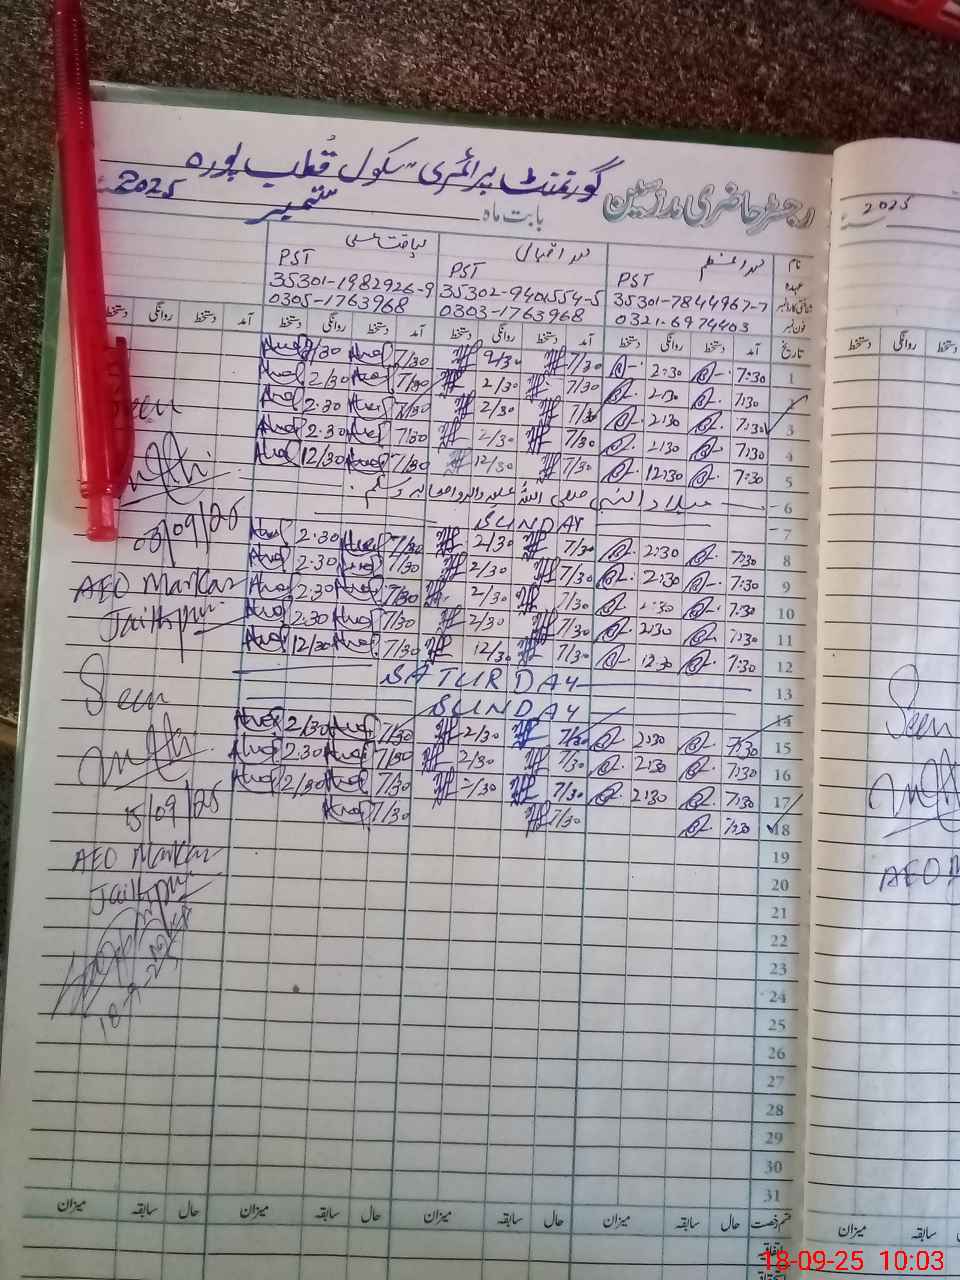 گورنمنٹ پرائمری سکول قطب پورہ
رجسٹر حاضری مدرسین
بابت ماہ ستمبر 2025
2025
نام
عہدہ PST PST PST
35301-7844967-7 35302-9401554-5 35301-1982926-9
فون نمبر 0321-6974403 0303-1763968 0305-1763968
تاریخ آمد دستخط روانگی دستخط آمد دستخط روانگی دستخط آمد دستخط روانگی دستخط آمد دستخط روانگی دستخط
1 7:30 2:30 7/30 2/30 7/30 2/30
2 7:30 2:30 7/30 2/30 7/30 2/30
3 7:30 2:30 7/30 2/30 7/30 2:30
4 7:30 2:30 7/30 2/30 7/30 2:30
5 7:30 12:30 7/30 12/30 7/30 12/30
6
7 SUNDAY
8 7:30 2:30 7/30 2/30 7/30 2:30
9 7:30 2:30 7/30 2/30 7/30 2:30
10 7:30 2:30 7/30 2/30 7/30 2:30
11 7:30 2:30 7/30 2/30 7/30 2:30
12 7:30 12:30 7/30 12/30 7/30 12/30
13 SATURDAY
14 SUNDAY
15 7:30 2:30 7/30 2/30 7/30 2/30
16 7:30 2:30 7/30 2/30 7/30 2:30
17 7:30 2:30 7/30 2/30 7/30 2/30
18 7:30 7/30 7/30
19
20
21
22
23
24
25
26
27
28
29
30
31
Seen
03/09/25
AEO Markaz
Jaithpur
Seen
15/09/25
AEO Markaz
Jaithpur
Seen
میزان سابقہ حال میزان سابقہ حال میزان سابقہ حال میزان سابقہ حال
اتفاقیہ
18-09-25 10:03